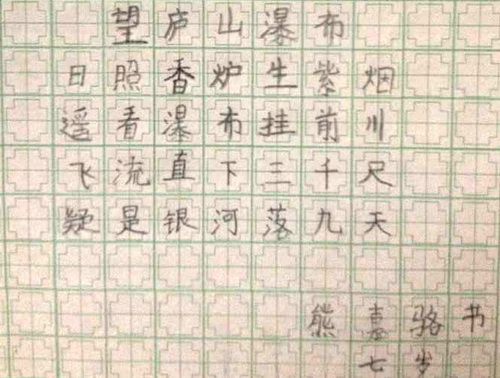 望庐山瀑布
日照香炉生紫烟
遥看瀑布挂前川
飞流直下三千尺
疑是银河落九天
熊骆书
七岁